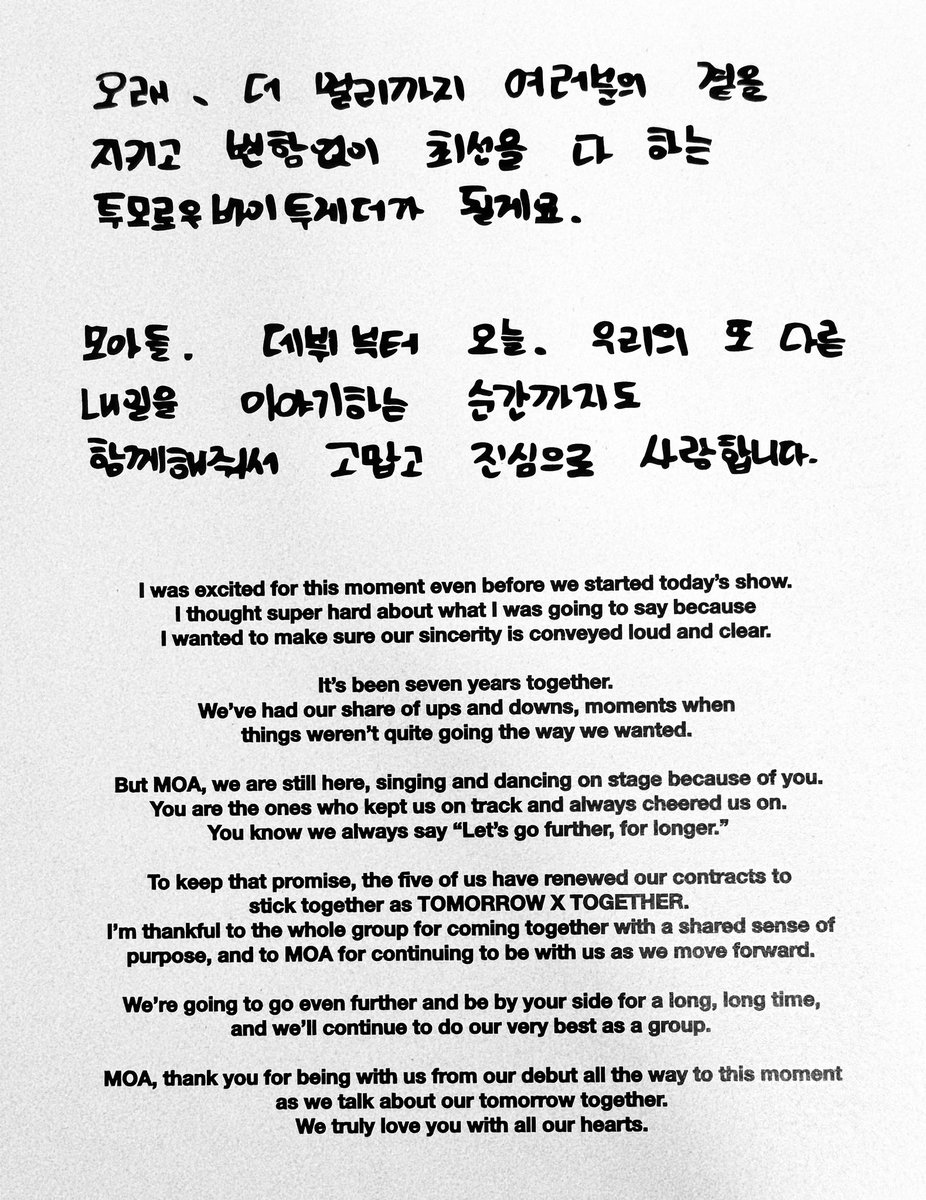 오래、 더 멀리까지 여러분의 곁을
지키고 변함없이 최선을 다 하는
투모로우바이투게더가 될게요.
모아들. 데뷔부터 오늘. 우리의 또 다른
내일을 이야기하는 순간까지도
함께해줘서 고맙고 진심으로 사랑합니다.
I was excited for this moment even before we started today's show.
I thought super hard about what I was going to say because
I wanted to make sure our sincerity is conveyed loud and clear.
It's been seven years together.
We've had our share of ups and downs, moments when
things weren't quite going the way we wanted.
But MOA, we are still here, singing and dancing on stage because of you.
You are the ones who kept us on track and always cheered us on.
You know we always say “Let's go further, for longer.”
To keep that promise, the five of us have renewed our contracts to
stick together as TOMORROW X TOGETHER.
I'm thankful to the whole group for coming together with a shared sense of
purpose, and to MOA for continuing to be with us as we move forward.
We're going to go even further and be by your side for a long, long time,
and we'll continue to do our very best as a group.
MOA, thank you for being with us from our debut all the way to this moment
as we talk about our tomorrow together.
We truly love you with all our hearts.